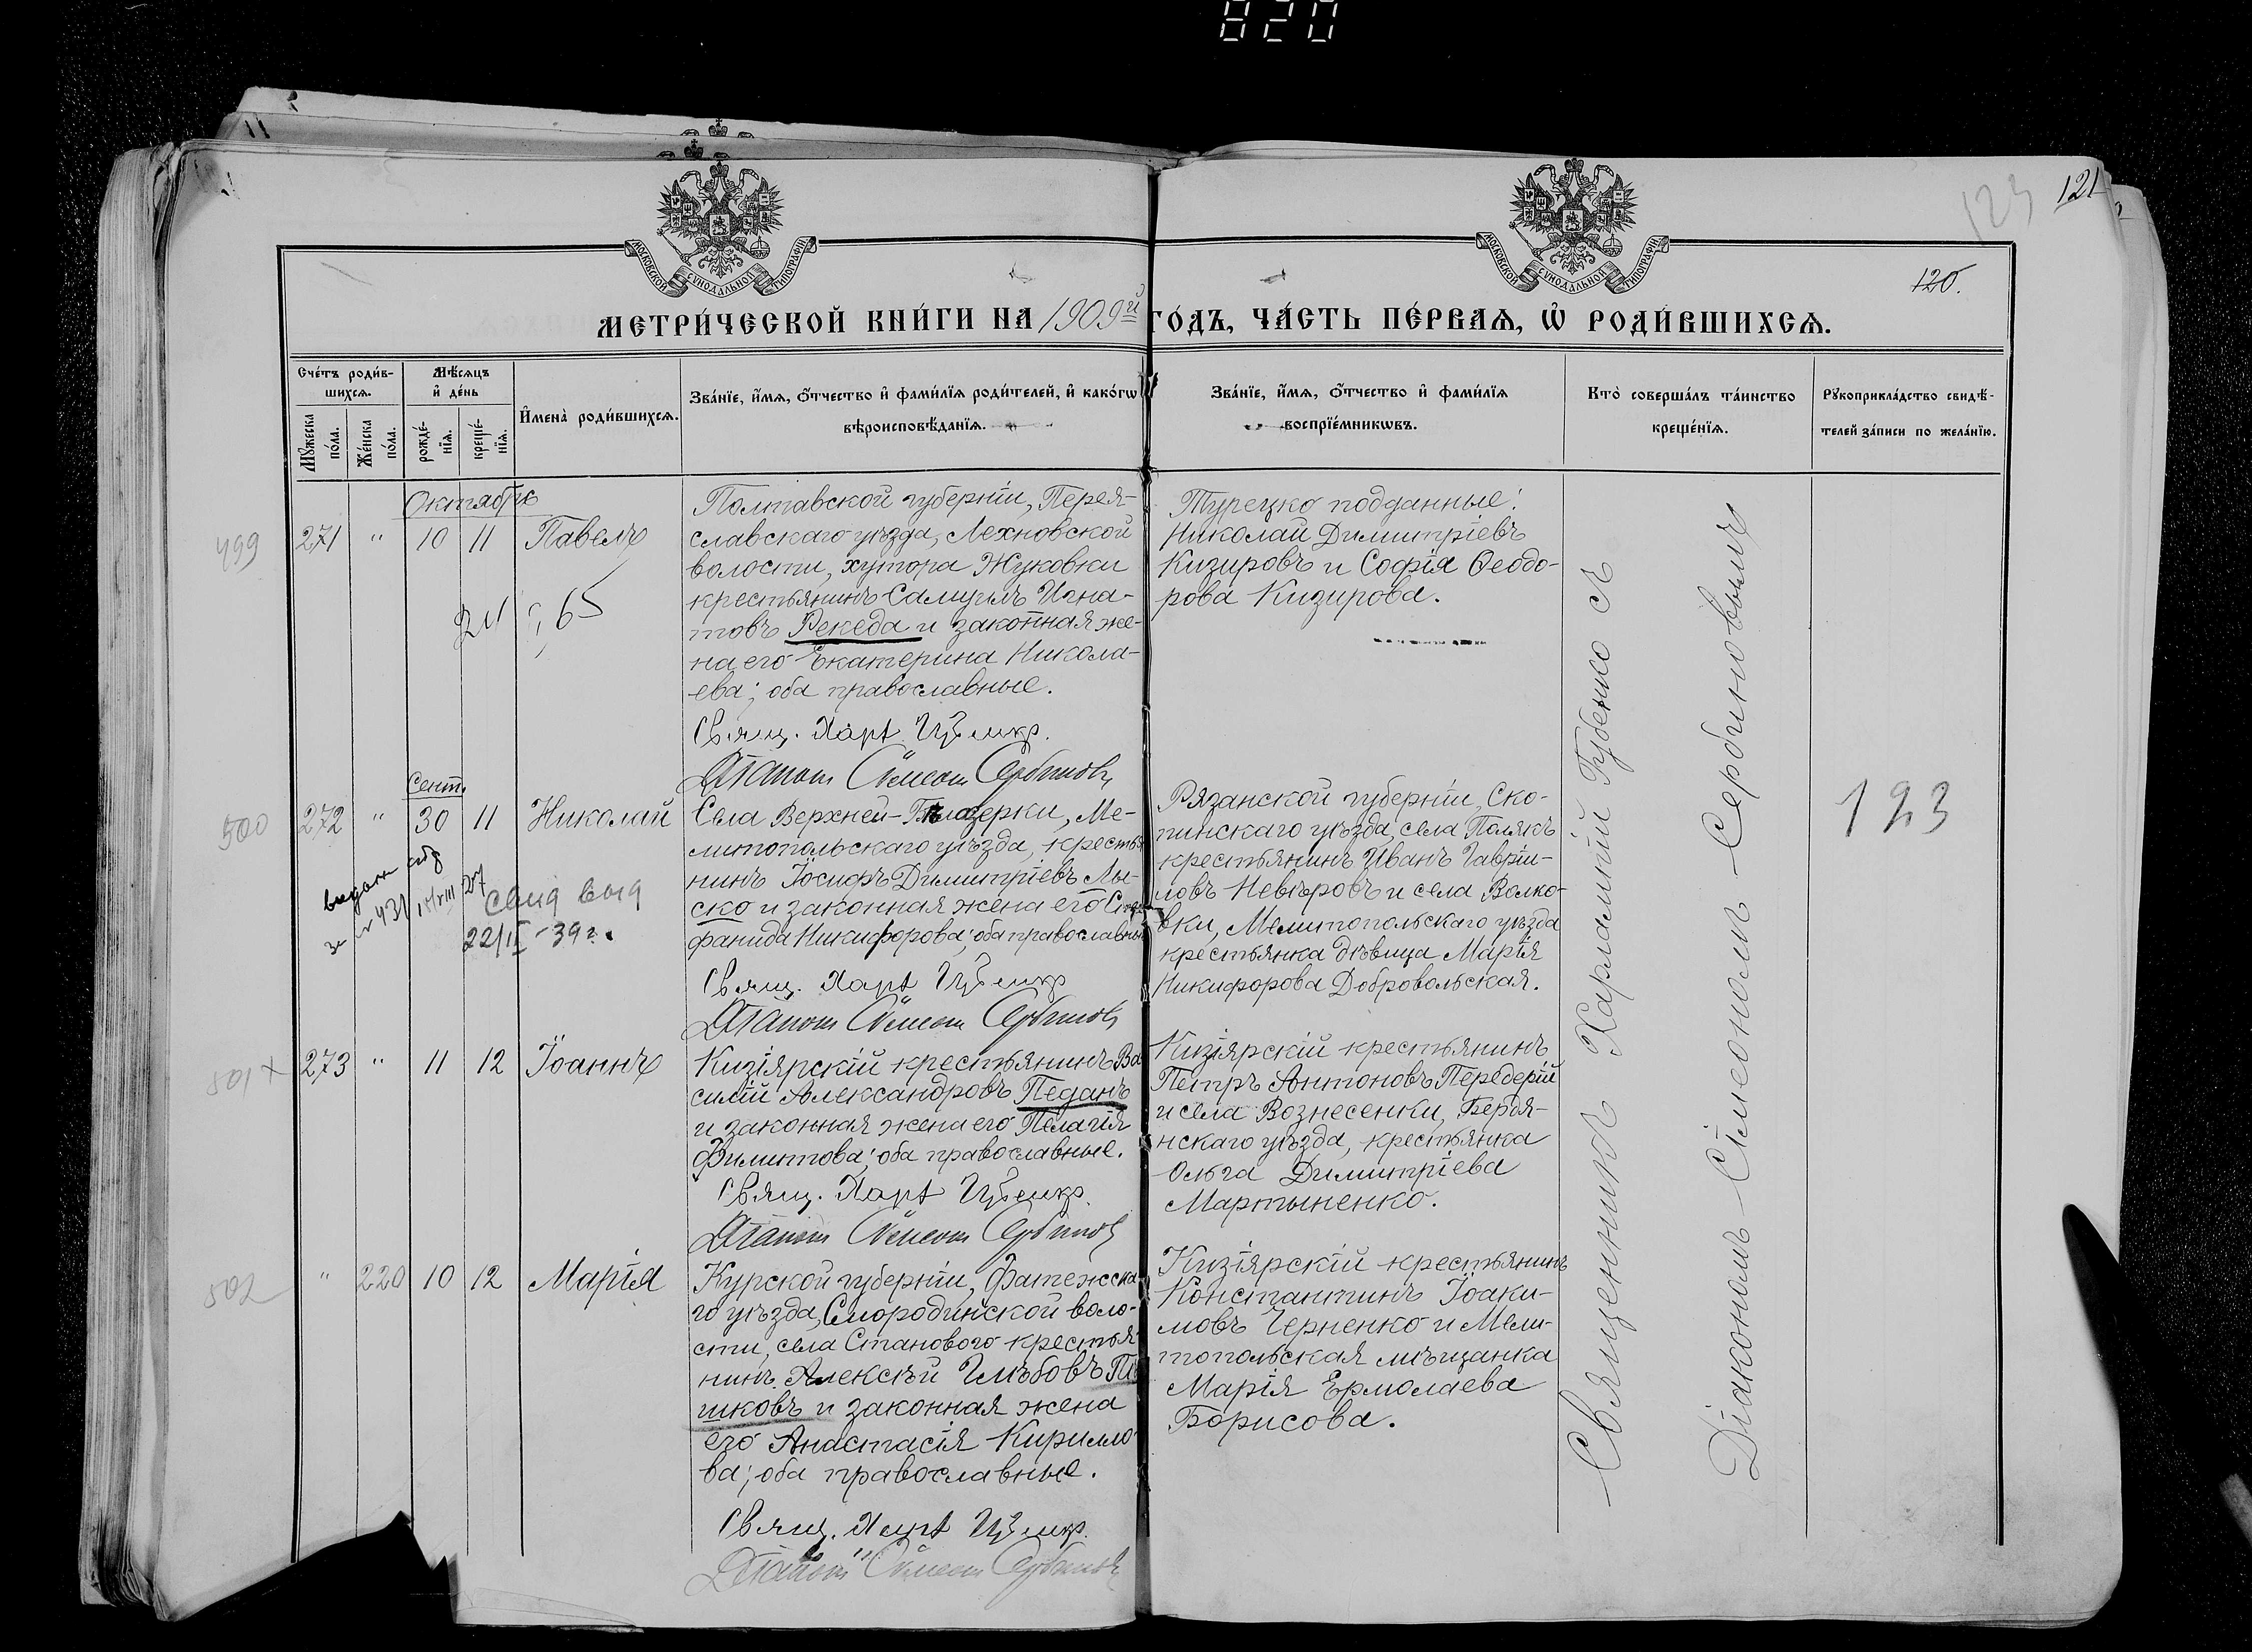 820
121
123
120.
МОСКОВСКОЙ СѴНОДАЛЬНОЙ ТИПОГРАФІИ
МОСКОВСКОЙ СѴНОДАЛЬНОЙ ТИПОГРАФІИ
МЕТРИ́ЧЕСКОЙ КНИ́ГИ НА 1909й ГО́ДЪ, ЧА́СТЬ ПЕ́РВАѦ, Ѡ҆ РОДИ́ВШИХСѦ.
Сче́тъ роди́в-
шихсѧ.
Мꙋ́жеска по́ла.
Же́нска по́ла.
Мѣ́сѧцъ
и҆ де́нь
рожде́-
нїѧ.
креще́-
нїѧ.
И҆мена̀ роди́вшихсѧ.
Зва́нїе, и҆́мѧ, ѻ҆́тчество и҆ фами́лїѧ роди́телей, и҆ како́гѡ
вѣроисповѣ́данїѧ.
Зва́нїе, и҆́мѧ, ѻ҆́тчество и҆ фами́лїѧ
воспрїе́мникѡвъ.
Кто̀ соверша́лъ та́инство
креще́нїѧ.
Рꙋкоприкла́дство свидѣ́-
телей за́писи по жела́нїю.
Октябрь
499
271 " 10 11 Павелъ
65
Полтавской губерніи, Перея-
славскаго уѣзда, Лехновской
волости, хутора Жуковки
крестьянинъ Самуилъ Игна-
товъ Рекеда и законная же-
на его Екатерина Никола-
ева; оба православные.
Свящ. Харл Губенко.
Діаконъ Сѵмеонъ Сербиновъ
Турецко подданные:
Николай Димитріевъ
Кизировъ и Софія Ѳеодо-
рова Кизирова.
Сент.
500
272 " 30 11 Николай
за № 431
свид выд
22/II - 39 г.
Села Верхней-Бѣлозерки, Ме-
литопольскаго уѣзда, крестья
нинъ Іосифъ Димитріевъ Лы-
ско и законная жена его Сте
фанида Никифорова; оба православные
Свящ. Харл Губенко
Діаконъ Сѵмеонъ Сербиновъ
Рязанской губерніи, Ско-
пинскаго уѣзда, села Полякъ
крестьянинъ Иванъ Гаврiи-
ловъ Невѣровъ и села Волко-
вки, Мелитопольскаго уѣзда
крестьянка дѣвица Марія
Никифорова Добровольская.
123
501 х
273 " 11 12 Іоаннъ
Кизіярскій крестьянинъ Ва
силій Александровъ Педанъ
и законная жена его Пелагія
Филиппова; оба православные.
Свящ. Харл Губенко.
Діаконъ Сѵмеонъ Сербиновъ
Кизіярскій крестьянинъ
Петръ Антоновъ Передерій
и села Вознесенки, Бердя-
нскаго уѣзда, крестьянка
Ольга Димитріева
Мартыненко.
502
" 220 10 12 Марія
Курской губерніи, Фатежска
го уѣзда, Смородинской воло-
сти, села Станового крестья
нинъ Алексѣй Глѣбовъ
шковъ и законная жена
его Анастасія Кирилло
ва; оба православные.
Свящ. Харл Губенко.
Діаконъ Сѵмеонъ Сербиновъ
Кизіярскій крестьянинъ
Константинъ Іоаки-
мовъ Черненко и Мели-
топольская мѣщанка
Марія Ермолаева
Борисова.
Священникъ Харлампій Губенко съ
Діакономъ Сѵмеономъ Сербиновымъ